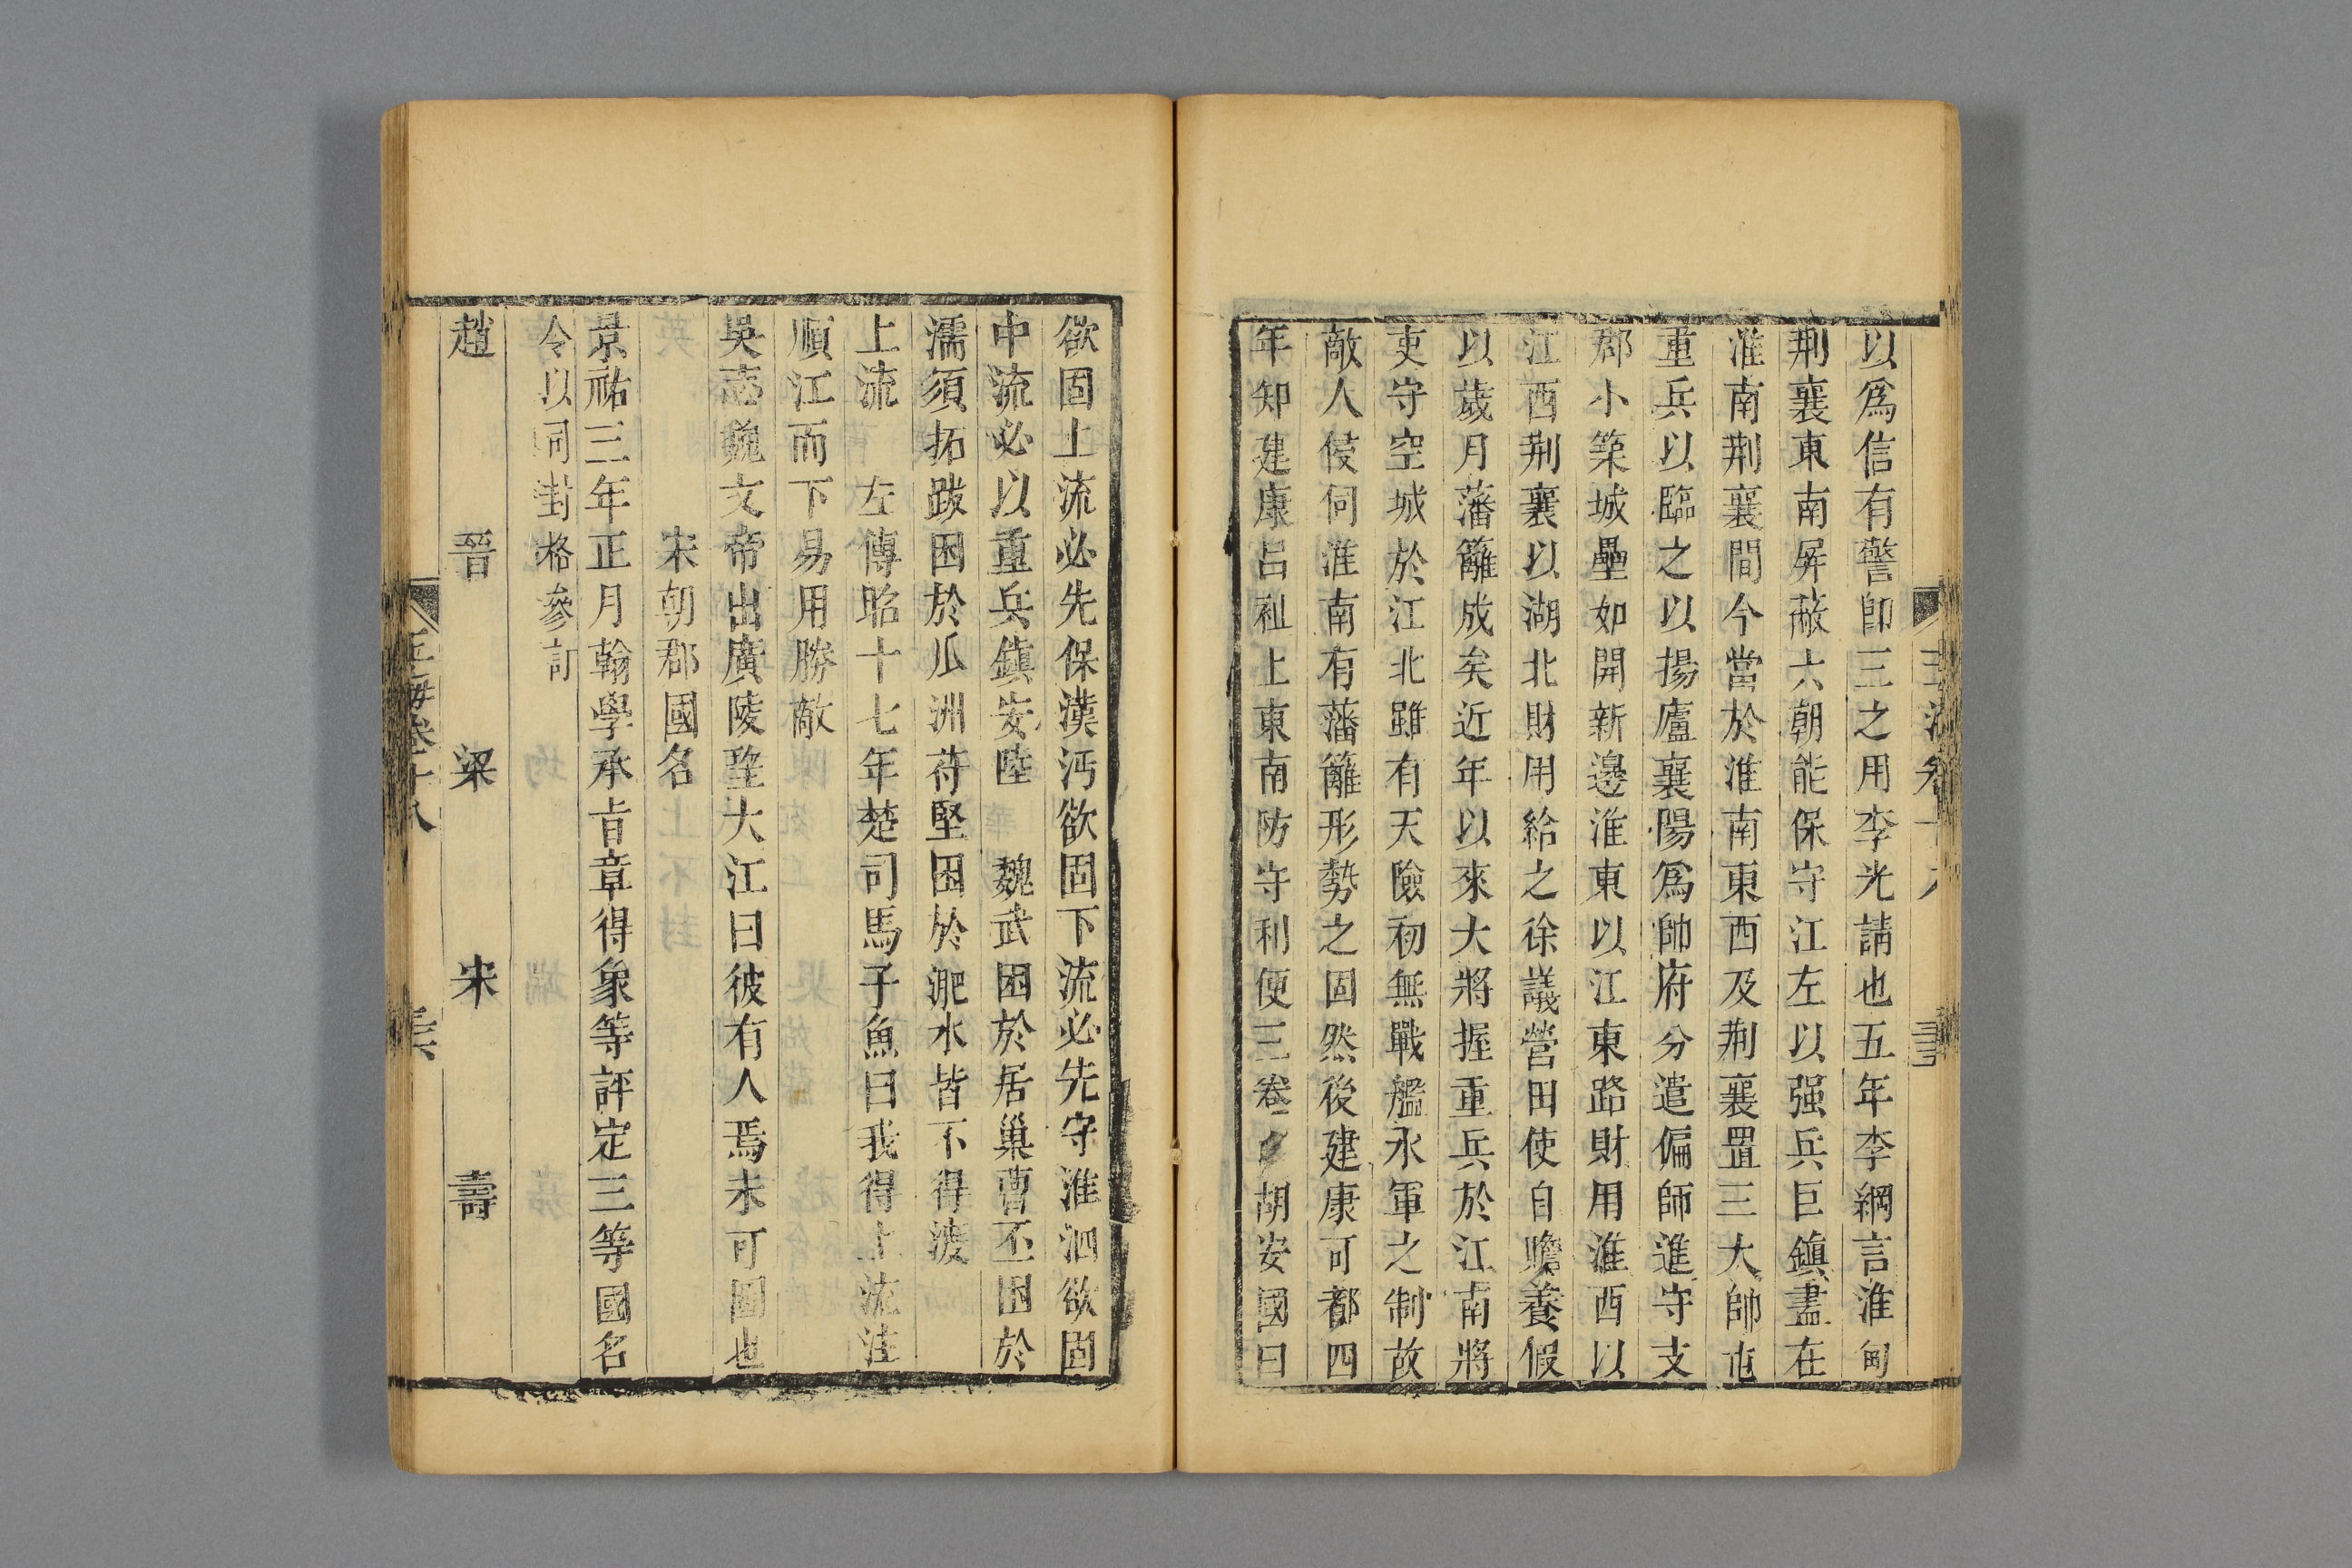 以爲信有警卽三之用李光請也五年李綱言淮甸
荆襄東南屏蔽六朝能保守江左以强兵巨鎮盡在
淮南荆襄間今當於淮南東西及荆襄置三大帥屯
重兵以臨之以揚廬襄陽爲帥府分遣偏師進守支
郡小築城壘如開新邊淮東以江東路財用淮西以
江西荆襄以湖北財用給之徐議營田使自贍養假
以歲月藩籬成矣近年以來大將握重兵於江南將
吏守空城於江北雖有天險初無戰艦水軍之制故
敵人侵伺淮南有藩籬形勢之固然後建康可都四
年知建康呂祉上東南防守利便三卷 胡安國曰
欲固上流必先保漢沔欲固下流必先守淮泗欲固
中流必以重兵鎮安陸 魏武困於居巢曹丕困於
濡須拓跋困於瓜洲苻堅困於淝水皆不得渡
上流 左傳昭十七年楚司馬子魚曰我得上流注
順江而下易用勝敵
吳志魏文帝出廣陵望大江曰彼有人焉未可圖也
宋朝郡國名
景祐三年正月翰學承旨章得象等評定三等國名
令以司封格參訂
趙 晉 梁 宋 壽
玉海卷十八